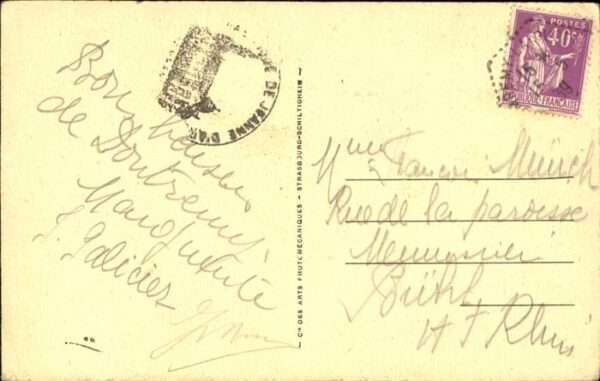 Bons baisers
de Domremy
Marguerite
DE JEANNE D'AR
Cie DES ARTS PHOTOMÉCANIQUES - STRASBOURG-SCHILTIGHEIM -
POSTES
40c
RÉPUBLIQUE FRANÇAISE
Mme Münch
Rue de la paroisse
Menuisier
Bühl
Ht Rhin